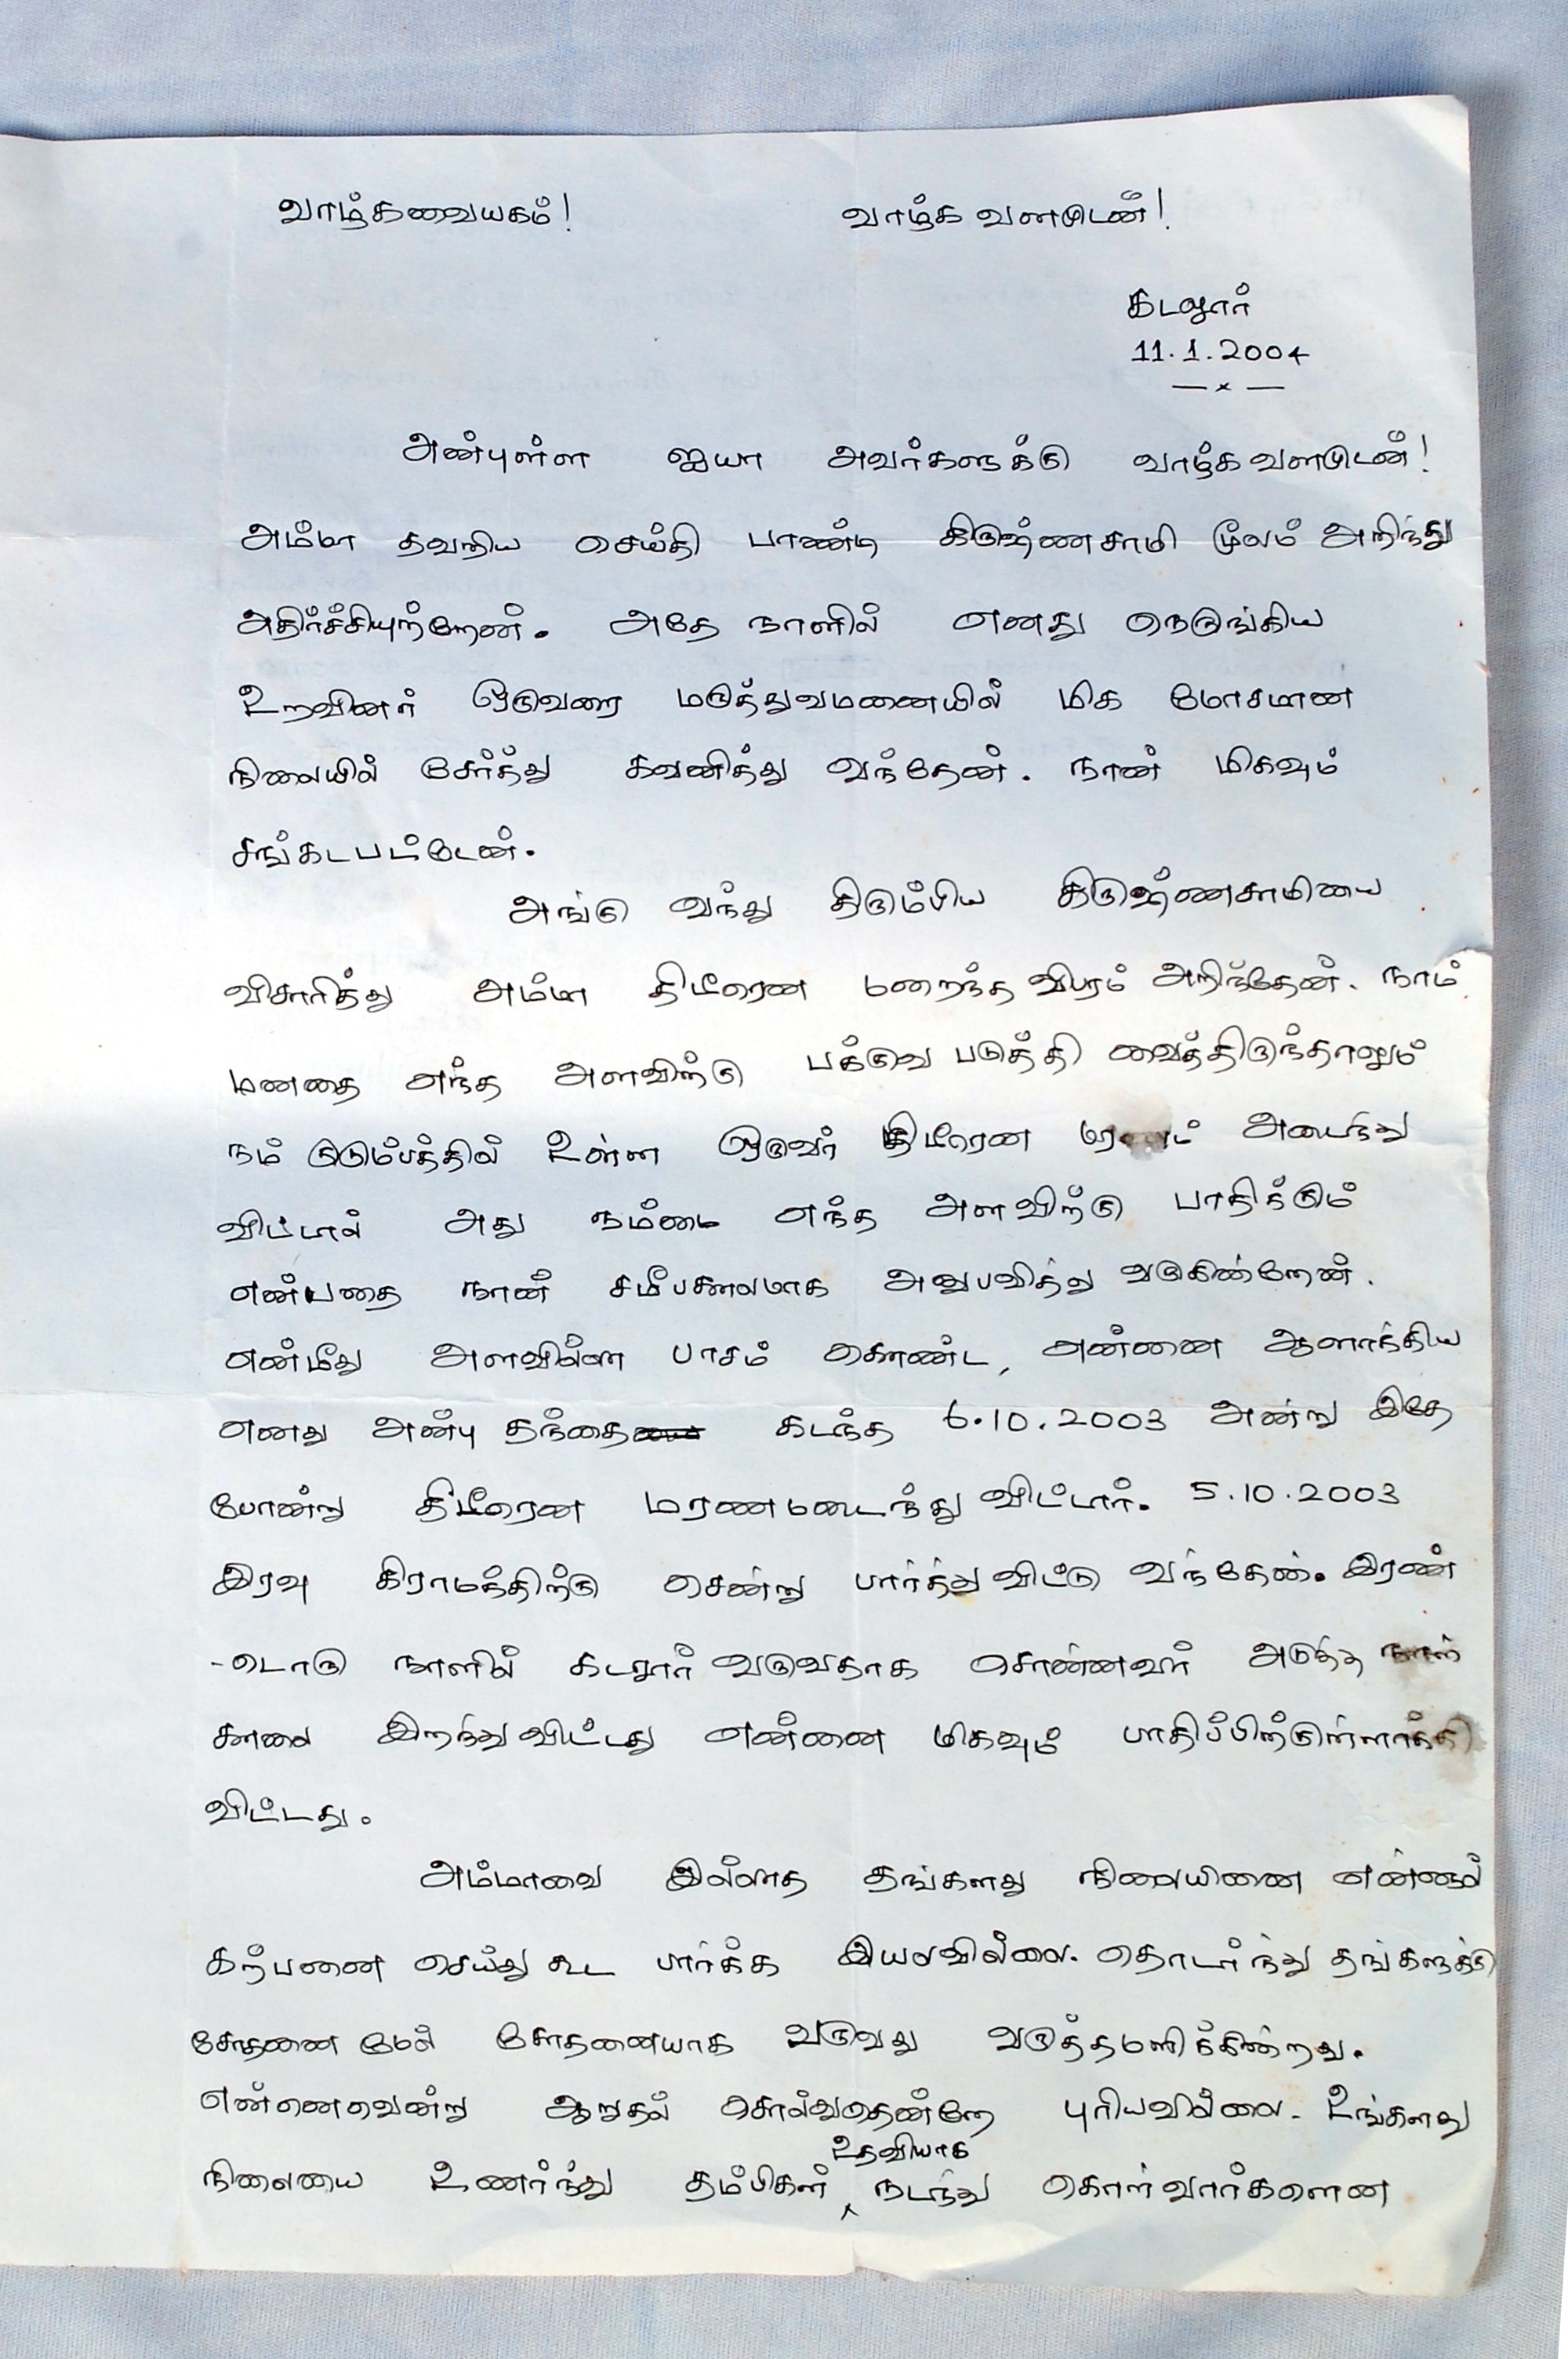 வாழ்கவையகம்! வாழ்க வளமுடன்!
கடலூர்
11.1.2004
—x—
அன்புள்ள ஐயா அவர்களுக்கு வாழ்க வளமுடன்!
அம்மா தவறிய செய்தி பாண்டி கிருஷ்ணசாமி மூலம் அறிந்து
அதிர்ச்சியுற்றேன். அதே நாளில் எனது நெருங்கிய
உறவினர் ஒருவரை மருத்துவமனையில் மிக மோசமான
நிலையில் சேர்த்து கவனித்து வந்தேன். நான் மிகவும்
சங்கடபட்டேன்.
அங்கு வந்து திரும்பிய கிருஷ்ணசாமியை
விசாரித்து அம்மா திடீரென மறைந்த விபரம் அறிந்தேன். நாம்
மனதை எந்த அளவிற்கு பக்குவ படுத்தி வைத்திருந்தாலும்
நம் குடும்பத்தில் உள்ள ஒருவர் திடீரென மரணம் அடைந்து
விட்டால் அது நம்மை எந்த அளவிற்கு பாதிக்கும்
என்பதை நான் சமீபகாலமாக அனுபவித்து வருகின்றேன்.
என்மீது அளவில்லா பாசம் கொண்ட, என்னை ஆளாக்கிய
எனது அன்பு தந்தை கடந்த 6.10.2003 அன்று இதே
போன்று திடீரென மரணமடைந்து விட்டார். 5.10.2003
இரவு கிராமத்திற்கு சென்று பார்த்து விட்டு வந்தேன். இரண்
-டொரு நாளில் கடலூர் வருவதாக சொன்னவர் அடுத்த நாள்
காலை இறந்து விட்டது என்னை மிகவும் பாதிப்பிற்குள்ளாக்கி
விட்டது.
அம்மாவை இல்லாத தங்களது நிலையினை என்னால்
கற்பனை செய்து கூட பார்க்க இயலவில்லை. தொடர்ந்து தங்களுக்கு
சோதனை மேல் சோதனையாக வருவது வருத்தமளிக்கின்றது.
என்னெவென்று ஆறுதல் சொல்லுவதென்றே புரியவில்லை. உங்களது
நிலையை உணர்ந்து தம்பிகள் உதவியாக நடந்து கொள்வார்களென